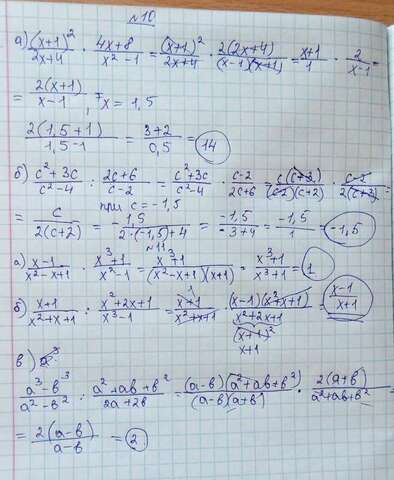 №10
а) (x+1)²/2x+4 · 4x+8/x²-1 = (x+1)²/2x+4 · 2(2x+4)/(x-1)(x+1) = x+1/1 · 2/x-1 =
= 2(x+1)/x-1, x = 1,5
2(1,5+1)/1,5-1 = 3+2/0,5 = 14
б) c²+3c/c²-4 : 2c+6/c-2 = c²+3c/c²-4 · c-2/2c+6 = c(c+3)/(c-2)(c+2) · c-2/2(c+3) =
= c/2(c+2) при c = -1,5 = -1,5/2·(-1,5)+4 = -1,5/-3+4 = -1,5/1 = -1,5
№11
а) x-1/x²-x+1 · x³+1/x²-1 = x³+1/(x²-x+1)(x+1) = x³+1/x³+1 = 1
б) x+1/x²+x+1 : x²+2x+1/x³-1 = x+1/x²+x+1 · (x-1)(x²+x+1)/x²+2x+1 = x-1/x+1
(x+1)²
x+1
в)
a³-b³/a²-b² : a²+ab+b²/2a+2b = (a-b)(a²+ab+b²)/(a-b)(a+b) · 2(a+b)/a²+ab+b² =
= 2(a-b)/a-b = 2